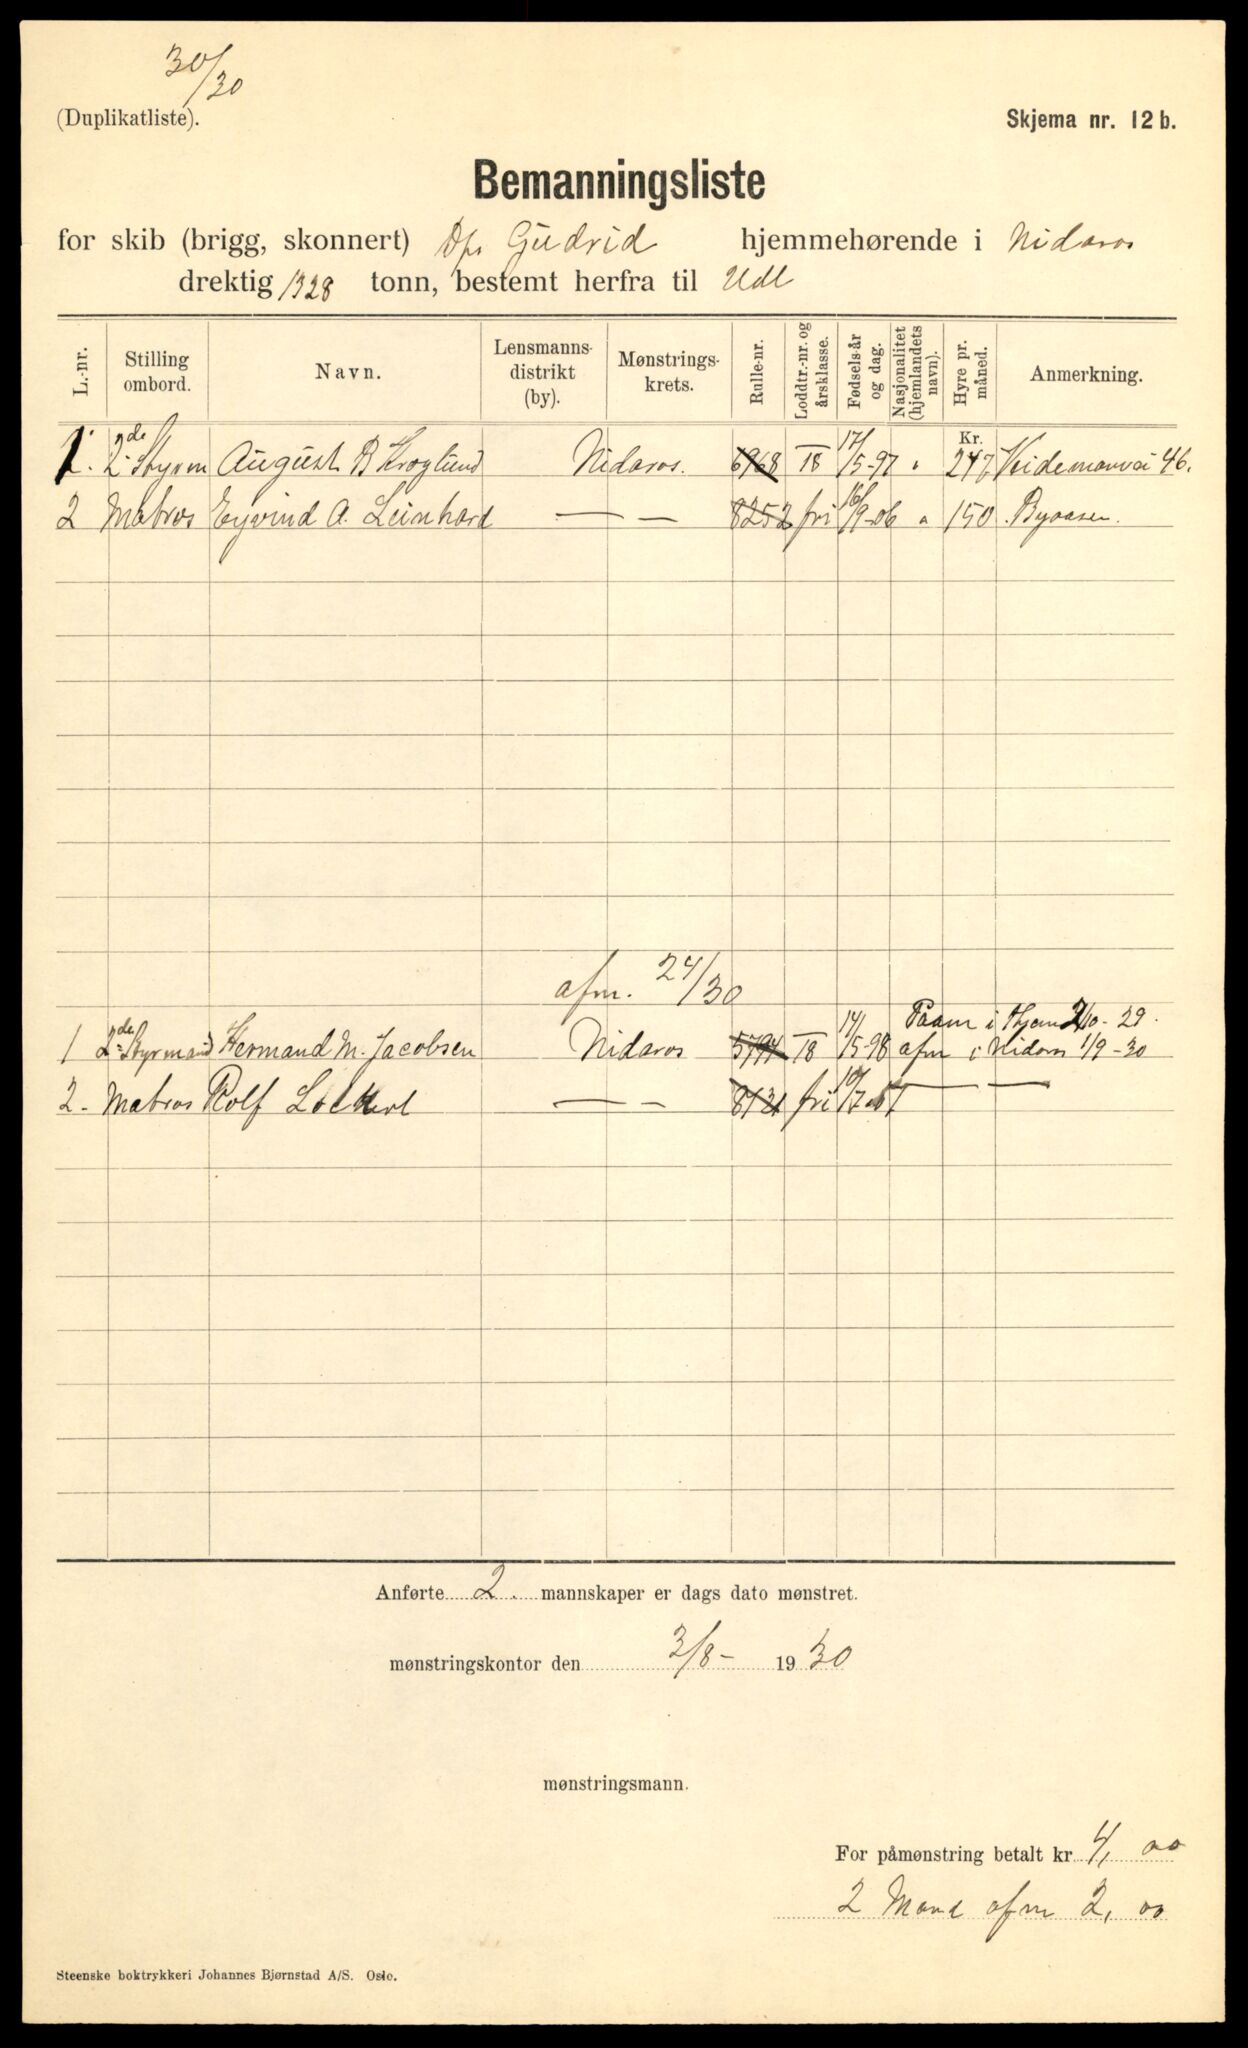 30/30
(Duplikatliste).
Skjema nr. 12 b.
Bemanningsliste
for skib (brigg, skonnert) D/s Gudrid hjemmehørende i Nidaros
drektig 1328 tonn, bestemt herfra til Udl
L.-nr. Stilling ombord. Navn. Lensmannsdistrikt (by). Mønstringskrets. Rulle-nr. Loddtr.-nr. og årsklasse. Fødsels-år og dag. Nasjonalitet (hjemlandets navn). Hyre pr. måned. Anmerkning.
Kr.
1. 2de Styrm August B Kroglund Nidaros. 6968 III 18 17/5-97 " 247 Veidemannsvei 46.
2 Matros Eyvind A. Leinhard — — 8252 fri 16/9-06 " 150 Byaasen.
afm. 24/30
Paam i Thjem 2/10-29.
1 2de Styrmand Hermand M. Jacobsen Nidaros 5794 III 18 14/5-98 afm i Nidaros 1/9-30
2. Matros Rolf Lockert — — 8131 fri 10/7-07 — —
Anførte 2. mannskaper er dags dato mønstret.
mønstringskontor den 3/8- 1930
mønstringsmann.
For påmønstring betalt kr 4,00
2 Mand afm 2,00
Steenske boktrykkeri Johannes Bjørnstad A/S. Oslo.